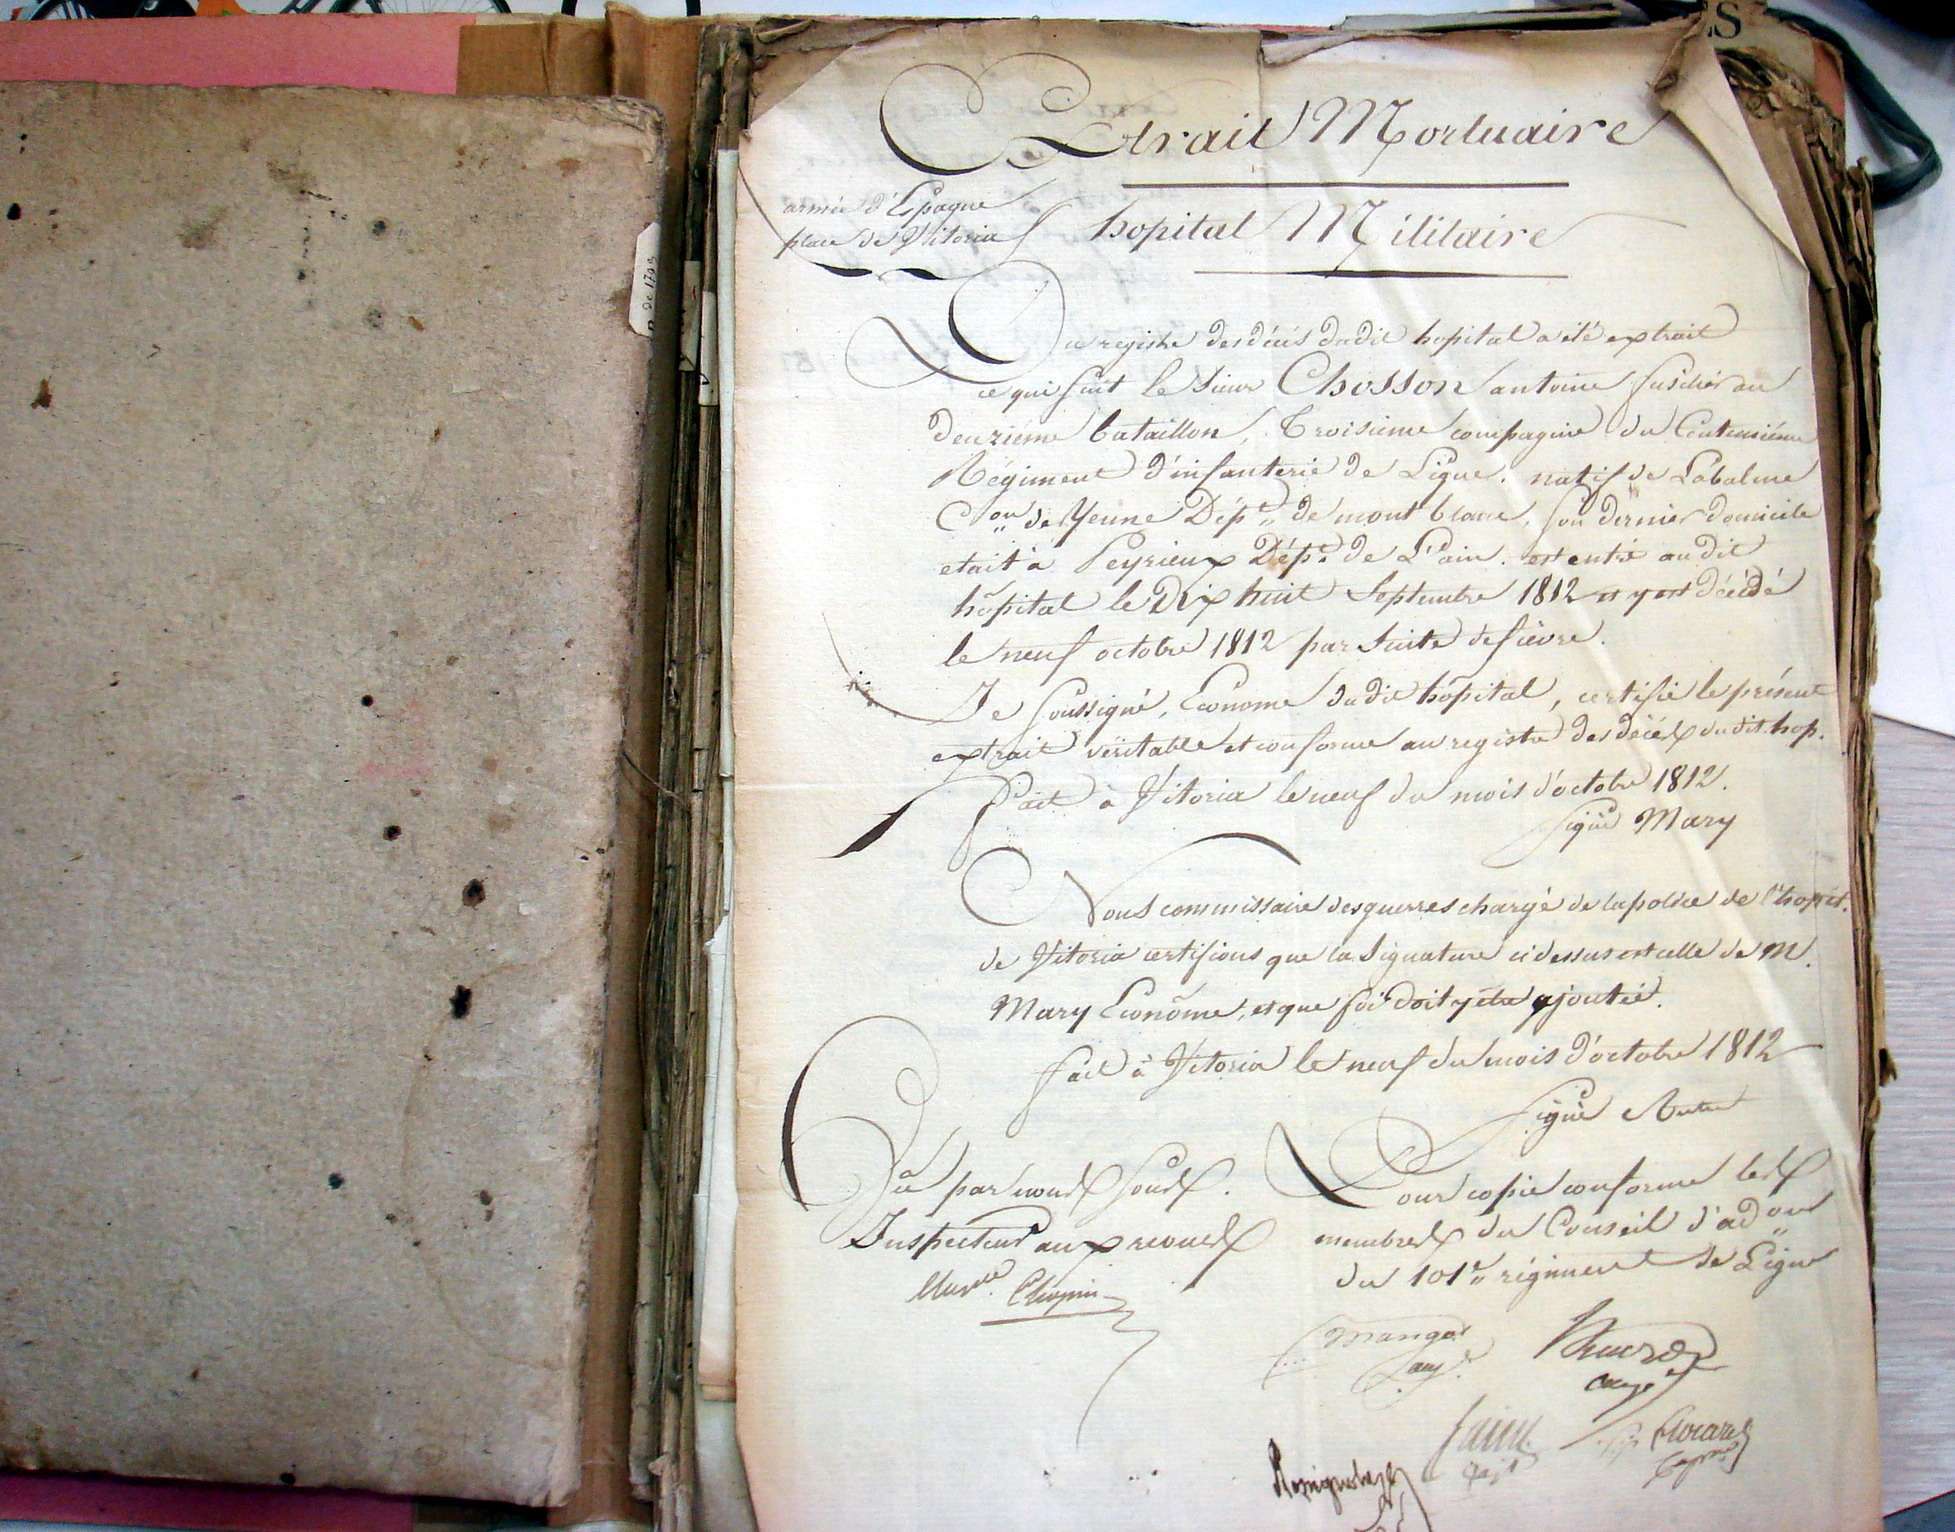 Extrait Mortuaire
armée d'Espagne
place de Vitoria
hopital Militaire
Du registre des décés dudit hopital a été extrait
ce qui suit le Sieur Chosson antoine fusilier au
deuziéme bataillon, Troisieme compagnie du Centuniéme
Régiment d'infanterie de Ligne. natif de Labalme
Con de Yenne Dépt de mont blanc, son dernier domicile
etait à Peyrieux Dépt de L'ain. est entré audit
hôpital le Dix huit Septembre 1812 et y est décédé
le neuf octobre 1812 par Suite de fièvre.
Je Soussigné, Econome dudit hôpital, certifie le présent
extrait véritable et conforme au registre des décés dudit hop.
Fait à Vitoria le neuf du mois d'octobre 1812.
Signé Mary
Nous commissaire des guerres chargé de la police de l'hopit.
de Vitoria certifions que la Signature ci dessus est celle de M.
Mary Econôme, et que foi doit y être ajoutée.
fait à Vitoria le neuf du mois d'octobre 1812
Signé
Vu par nous Sous.
Inspecteur aux revues
Chopin
Pour copie conforme les
membres du Conseil d'adon
du 101e régiment de Ligne
de 1793
ES